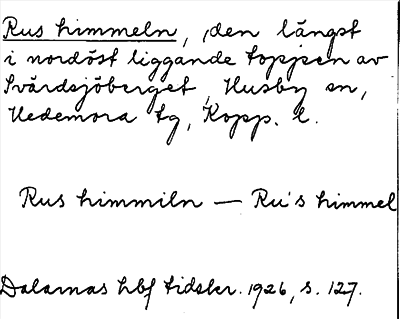 Rus himmeln, den längst
i nordöst liggande toppen av
Svärdsjöberget, Husby sn,
Hedemora tg, Kopp. l.
Rus himmiln — Ru's himmel
Dalarnas hbf tidskr. 1926, s. 127.